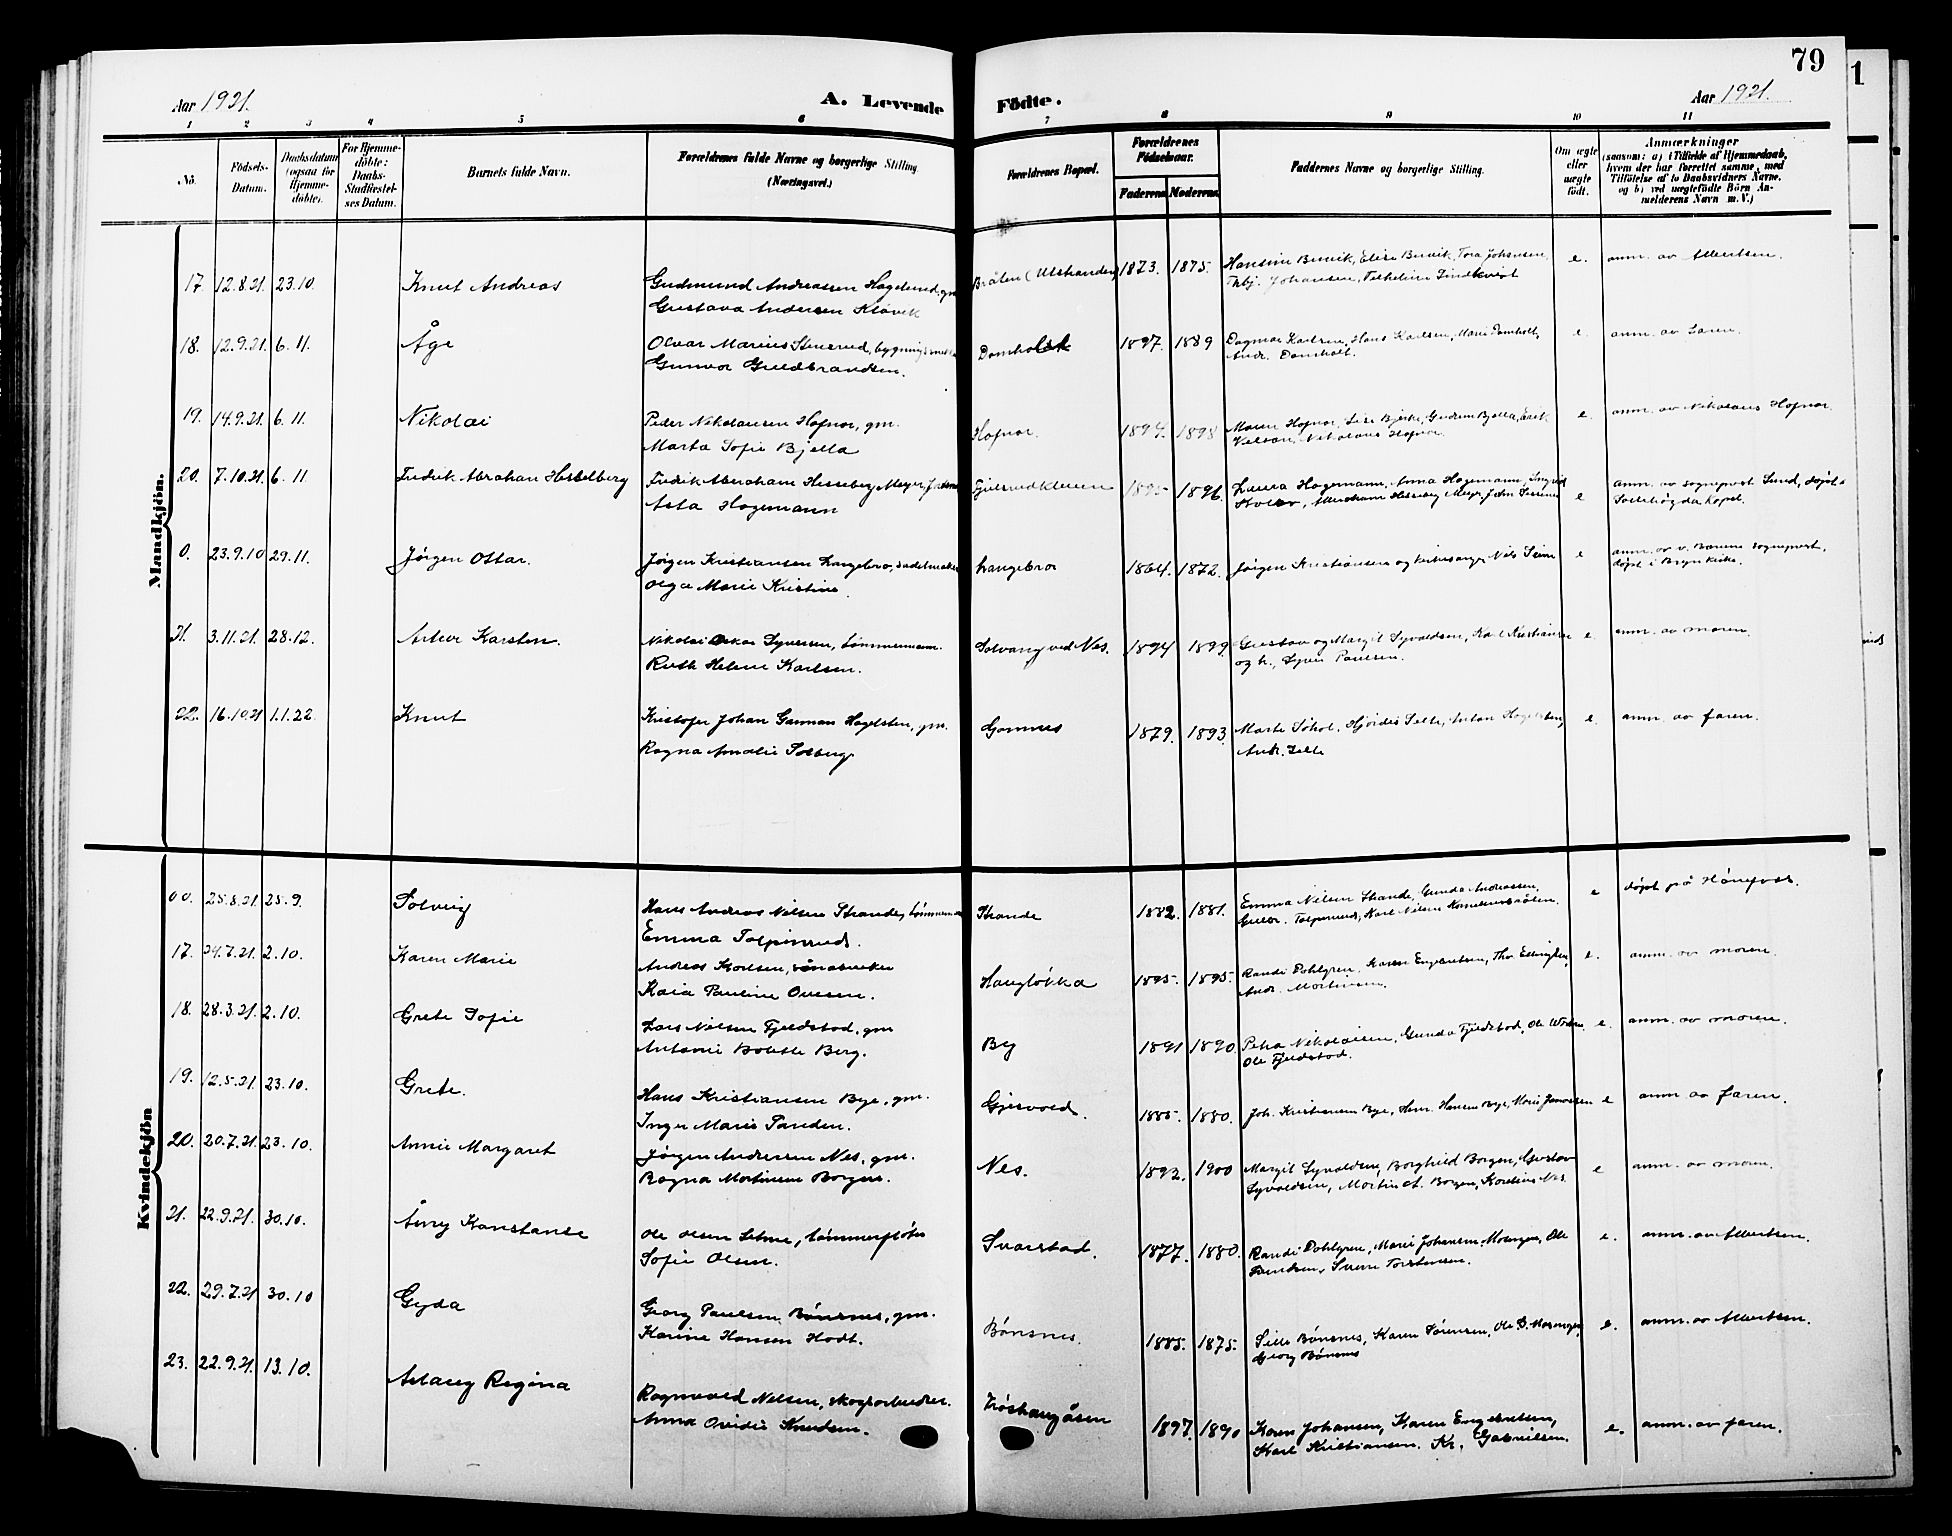 79
1
Aar 1921.
A. Levende
Födte.
Aar 1921.
1 2 3 4 5 6 7 8 9 10 11
No.
Födsels-
Datum.
Daabsdatum
(ogsaa for
Hjemme-
döbte).
For Hjemme-
döbte:
Daabs-
Stadfæstel-
ses Datum.
Barnets fulde Navn.
Forældrenes fulde Navne og borgerlige Stilling.
(Næringsvei.)
Forældrenes Bopæl.
Forældrenes
Födselsaar.
Faderens Moderens
Faddernes Navne og borgerlige Stilling.
Om ægte
eller
uægte
födt.
Anmærkninger
(saasom: a) i Tilfælde af Hjemmedaab,
hvem der har forrettet samme, med
Tilföielse af to Daabsvidners Navne,
og b) ved uægtefödte Börn An-
melderens Navn m. V.)
Mandkjön.
17. 12.8.21. 23.10. Knut Andreas
Gudmund Andreassen Hagelund, gm.
Gustava Andersen Kløvik
Bråten (Utstranden) 1873. 1875.
Hansine Burvik, Elise Burvik, Tora Johansen,
Thbj. Johansen,
e. anm. av Albertsen.
18. 12.9.21. 6.11. Åge
Olvar Marius Stensrud,
Gunvor Guldbrandsen.
Domholt 1897. 1889
Dagmar Karlsen, Hans Karlsen, Marie Domholt,
Andr. Domholt.
e. anm. av
19. 14.9.21. 6.11. Nikolai
Peder Nikolausen Hofnor, gm.
Marta Sofie Bjella
Hofnor. 1894. 1898
Maren Hofnor, Lise Bjerke, Gudrun Bjella,
Nikolaus Hofnor.
e. anm. av Nikolaus Hofnor.
20. 7.10.21. 6.11. Fredrik Abraham Hesselberg
Fredrik Abraham Hesselberg Meyer,
Asta Hagemann
1895 1896.
Laura Hagemann, Anna Hagemann, Ingrid
Abraham Hesselberg Meyer, John
e anm. av sogneprest Lund, døpt i
Sollihøgda Kapel.
0. 23.9.10 29.11. Jørgen Ottar.
Jørgen Kristiansen Langebro, sadelmaker
Olga Marie Kristine
Langebro 1864. 1872.
Jørgen Kristiansen og kirkesanger Nils Seim
e anm. av v. Bærums sogneprest,
døpt i Bryn Kirke.
21. 3.11.21. 28.12. Artur Karsten.
Nikolai Oskar Syversen, tømmermann.
Ruth Helene Karlsen.
Solvang ved Nes. 1894 1899.
Gustav og Margit Syvaldsen, Karl Kristiansen
og h., Syver Paulsen.
e. anm. av moren.
22. 16.10.21 1.1.22. Knut
Kristofer Johan Garman Hagelsten, gm.
Ragna Amalie Solberg.
Gomnes 1879. 1893.
Marte Søhol, Hjørdis Selte, Anton Hagelsten,
Andr. Selte
e. anm. av faren.
Kvindekjön
00. 25.8.21. 25.9. Solveig
Hans Andreas Nilsen Strande,
Emma Tolpinrud.
Strande 1882. 1881.
Emma Nilsen Strande, Gunda Andreassen,
Tolpinrud, Karl Nilsen
e døpt på Hønefoss.
17. 24.7.21. 2.10. Karen Marie
Andreas Karlsen,
Kaia Pauline Ovesen.
Hauglökka 1895. 1895.
Randi Dohlgren, Karen Engebretsen, Thv. Ellingsen,
Andr. Mortinsen
e. anm. av moren.
18. 28.3.21. 2.10. Grete Sofie
Lars Nilsen Fjeldstad, gm
Antonie Bolette Berg.
By 1891 1890.
Petra Nikolaisen, Gunda Fjeldstad, Ole
Ole Fjeldstad.
e. anm. av moren.
19. 12.5.21. 23.10. Grete.
Hans Kristiansen Bye, gm.
Inger Marie Sanden.
Gjesvold. 1885. 1880.
Joh. Kristiansen Bye, Hans Hansen Bye, Marie
e anm av faren.
20. 20.7.21. 23.10. Annie Margaret
Jørgen Andersen Nes, gm.
Ragna Mortinsen Borgen.
Nes. 1892. 1900
Margit Syvaldsen, Borghild Borgen, Gustav
Syvaldsen, Martin A. Borgen, Nes.
e anm. av moren.
21. 22.9.21. 30.10. Åny Konstanse
Ole Olsen Setne, tømmerfløter
Sofie Olsen.
Svarstad. 1877. 1880.
Randi Dohlgren, Marie Johansen, Ole
Torstensen.
e. anm. av Albertsen.
22. 29.7.21 30.10 Gyda
Georg Paulsen Bønsnes, gm.
Karine Hansen Hodt.
Bønsnes. 1885. 1875.
Sille Bønsnes, Karen Sørensen, Ole B.
Georg Bønsnes
e. anm. av Albertsen.
23. 22.9.21. 13.10. Aslaug Regina
Ragnvald Nilsen, skogsarbeider.
Anna Ovidie Knudsen.
1897. 1890
Karen Johansen, Karen Engebretsen,
Karl Kristiansen. Kr. Gabrielsen.
e. anm. av faren.